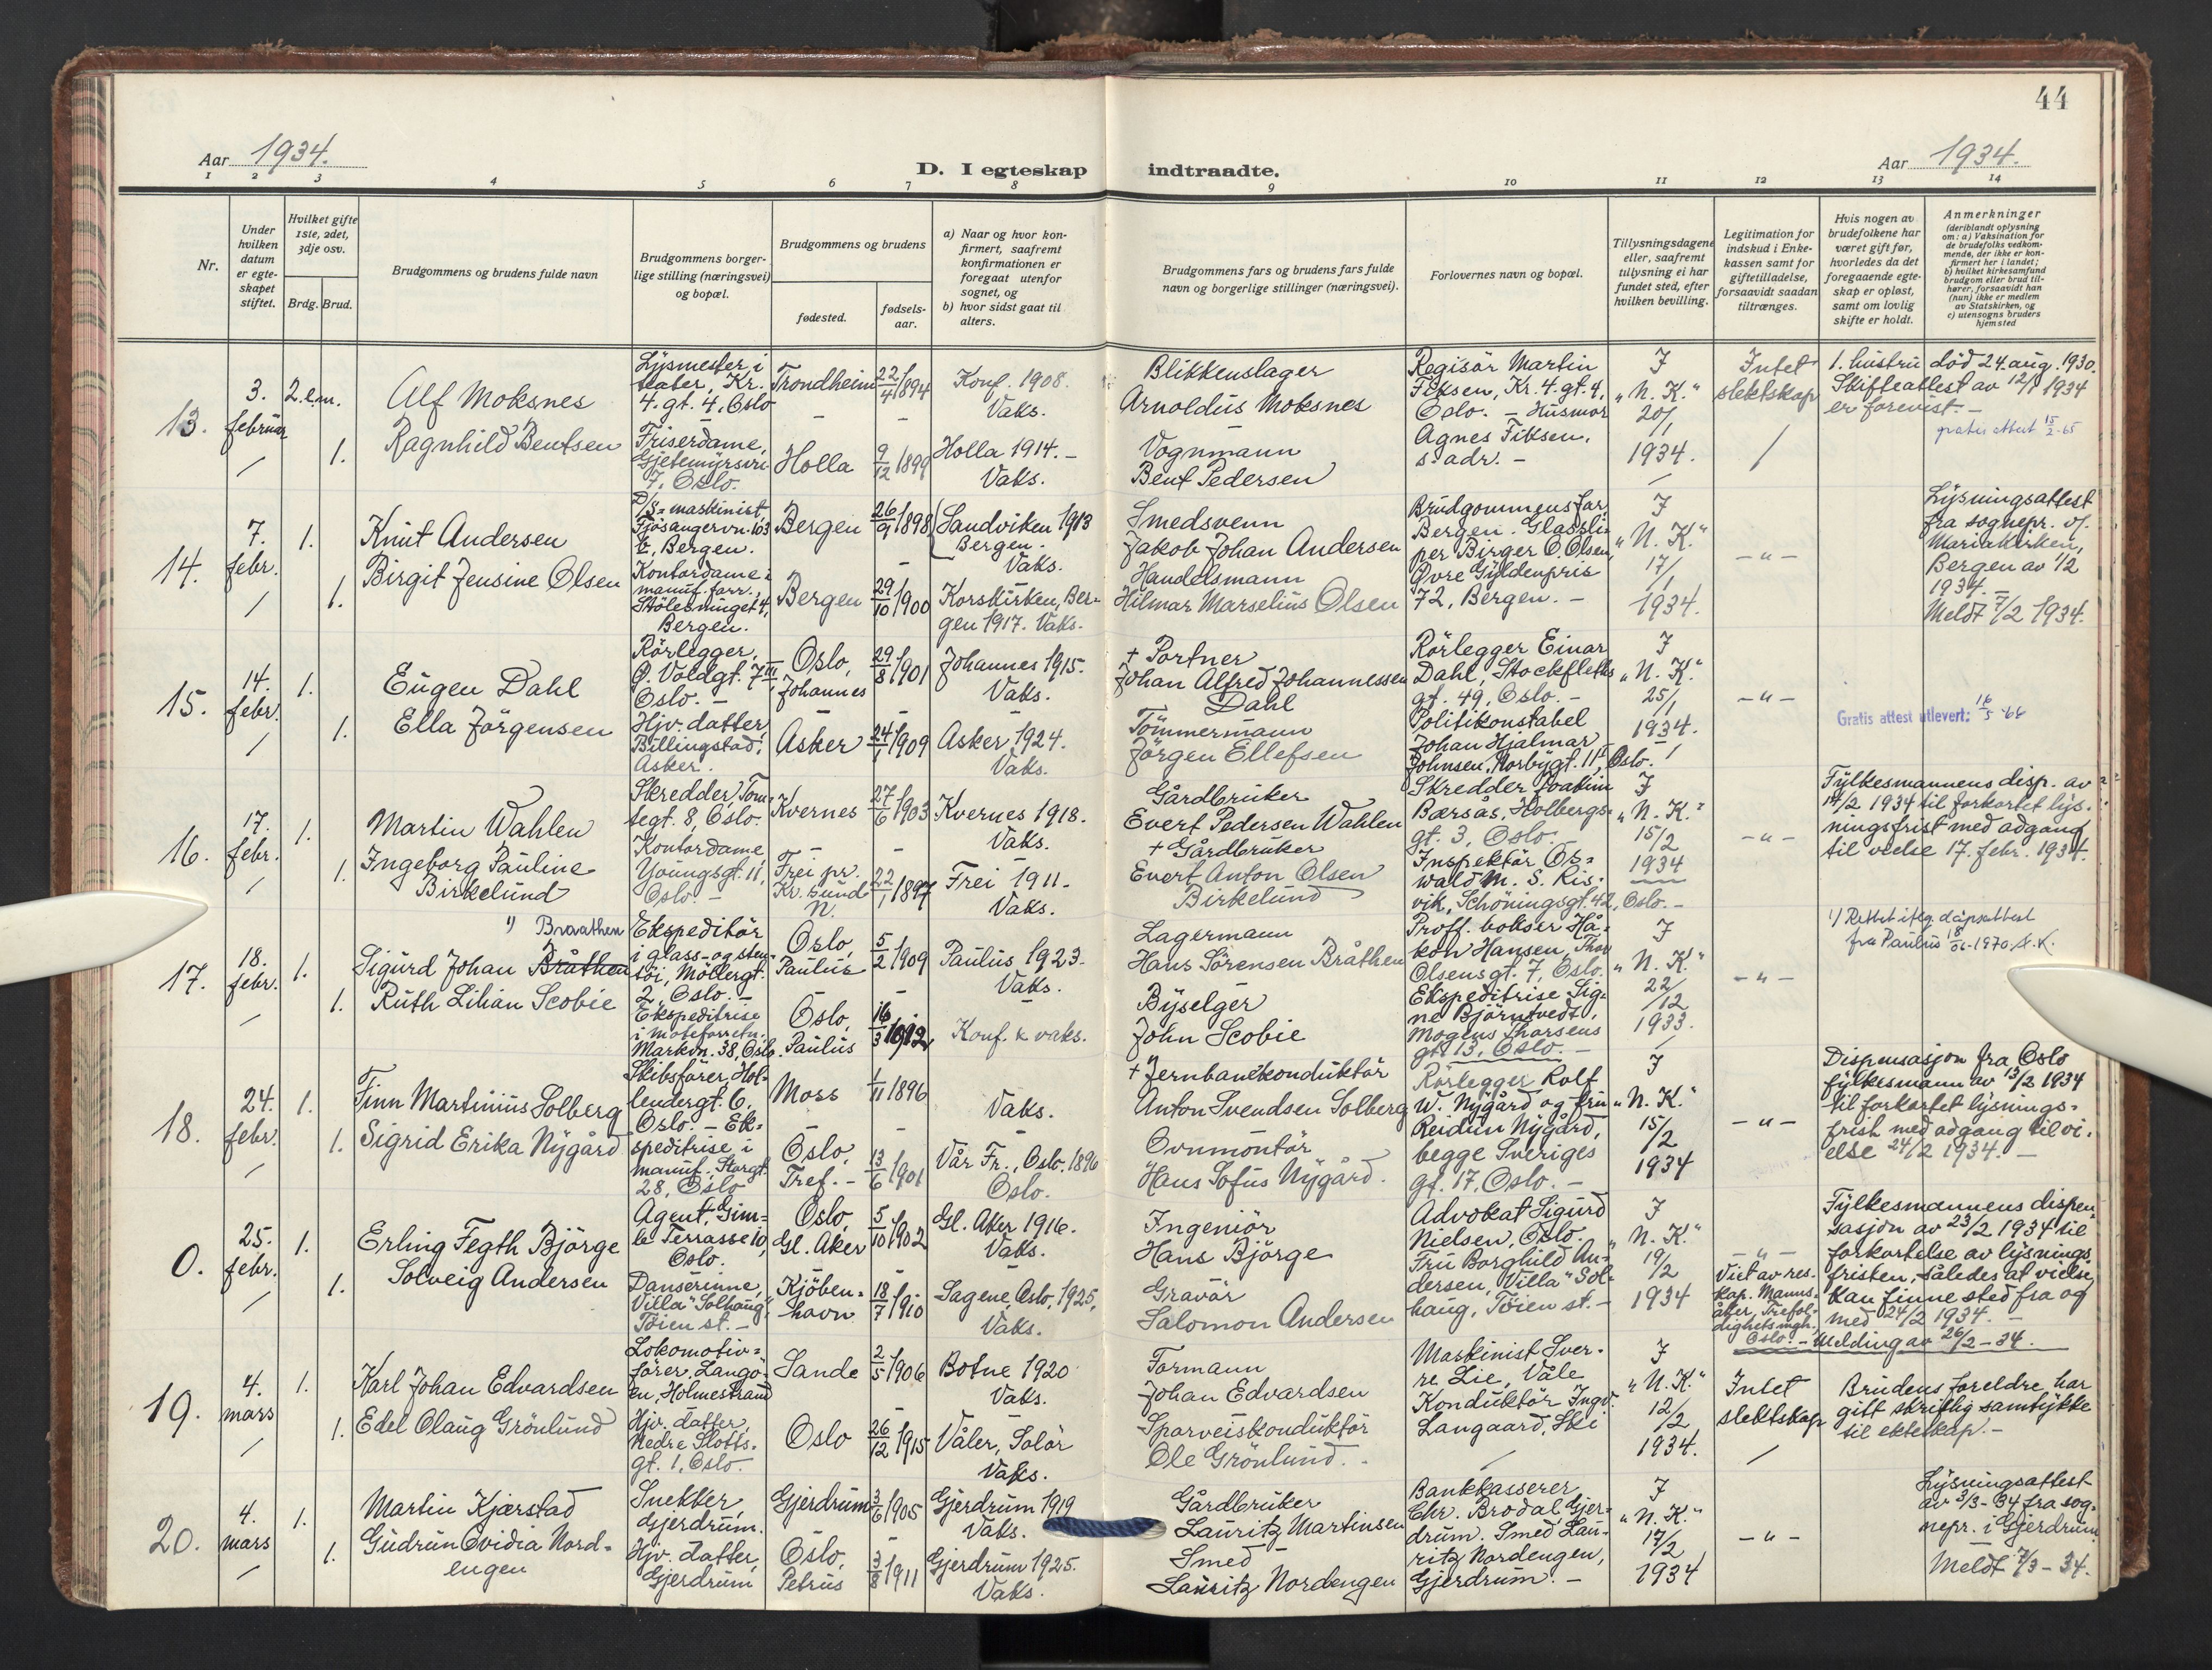 44
Aar 1934.
D. I egteskap indtraadte.
Aar 1934.
1 2 3 4 5 6 7 8 9 10 11 12 13 14
Nr.
Under hvilken datum er egteskapet stiftet.
Hvilket gifte 1ste, 2det, 3dje osv.
Brdg. Brud.
Brudgommens og brudens fulde navn
Brudgommens borgerlige stilling (næringsvei) og bopæl.
Brudgommens og brudens
fødested.
fødselsaar.
a) Naar og hvor konfirmert, saafremt konfirmationen er foregaat utenfor sognet, og
b) hvor sidst gaat til alters.
Brudgommens fars og brudens fars fulde navn og borgerlige stillinger (næringsvei).
Forlovernes navn og bopæl.
Tillysningsdagene eller, saafremt tillysning ei har fundet sted, efter hvilken bevilling.
Legitimation for indskud i Enkekassen samt for giftetilladelse, forsaavidt saadan tiltrænges.
Hvis nogen av brudefolkene har været gift før, hvorledes da det foregaaende egteskap er opløst, samt om lovlig skifte er holdt.
Anmerkninger
(deriblandt oplysning om: a) Vaksination for de brudefolks vedkommende, der ikke er konfirmert her i landet;
b) hvilket kirkesamfund brudgom eller brud tilhører, forsaavidt han (hun) ikke er medlem av Statskirken, og
c) utensogns bruders hjemsted
13.
3. februar
2. e.m.
1.
Alf Moksnes
Ragnhild Bentsen
Lysmester i
teater, Kr.
4. gt. 4, Oslo
Friserdame,
Gjetemyrsvn.
7, Oslo.
Trondheim 22/4 1894
Holla 9/12 1899
Konf. 1908.
Vaks.
Holla 1914. –
Vaks.
Blikkenslager
Arnoldus Moksnes
Vognmann
Bent Pedersen
Regisør Martin
Fiksen, Kr. 4. gt. 4,
Oslo. – Husmor
Agnes Fiksen,
s. adr. –
I
"N. K."
20/1
1934.
Intet
slektskap
1. hustru død 24. aug. 1930.
Skifteattest av 12/1 1934
er forevist. –
gratis attest 15/2-65
14.
7. febr.
1.
1.
Knut Andersen
Birgit Jensine Olsen
D/S = maskinist,
Fjøsangervn. 163
b, Bergen.
Kontordame i
manuf. forr.,
Stølesmuget 4,
Bergen.
Bergen 26/9 1898
Bergen 29/10 1900
Sandviken 1913
Bergen.
Vaks.
Korskirken, Ber-
gen 1917. Vaks.
Smedsvenn
Jakob Johan Andersen
Handelsmann
Hilmar Marselius Olsen
Brudgommens far,
Bergen. Glassli-
per Birger O. Olsen,
Øvre Gyldenpris
72, Bergen. –
I
"N. K."
17/1
1934.
– " –
Lysningsattest
fra sognepr. v/
Mariakirken,
Bergen av 1/2
1934. –
Meldt 7/2 1934.
15.
14. febr.
1.
1.
Eugen Dahl
Ella Jørgensen
Rørlegger,
Ø. Voldgt. 7 III,
Oslo. –
Hjv. datter,
Billingstad,
Asker.
Oslo, Johannes 29/8 1901
Asker 24/1 1909
Johannes 1915.
Vaks.
Asker 1924.
Vaks.
+ Portner
Johan Alfred Johannessen
Dahl
Tømmermann
Jørgen Ellefsen
Rørlegger Einar
Dahl, Stockfleths
gt. 49, Oslo. –
Politikonstabel
Johan Hjalmar
Johnsen, Norbygt. 11 I, Oslo.
I
"N. K."
25/1
1934.
– " –
Gratis attest utlevert: 16/5-68
16.
17. febr.
1.
1.
Martin Wahlen
Ingeborg Pauline
Birkelund
Skredder, Tom-
tegt. 8, Oslo.
Kontordame,
Youngsgt. 11,
Oslo. –
Kvernes 27/6 1903
Frei pr.
Kr.sund
N. 22/1 1897
Kvernes 1918.
Vaks.
Frei 1911.
Vaks.
Gårdbruker
Evert Pedersen Wahlen
+ Gårdbruker
Evert Anton Olsen
Birkelund
Skredder Joakim
Bærsås, Holbergs-
gt. 3, Oslo.
Inspektør Os-
wald M. S. Ris-
vik, Schøningsgt. 42, Oslo. –
I
"N. K."
15/2
1934
– " –
Fylkesmannens disp. av
14/2 1934 til forkortet lys-
ningsfrist med adgang
til vielse 17. febr. 1934.
17.
18. febr.
1.
1.
1) Braathen
Sigurd Johan Bråthen
Ruth Lilian Scobie
Ekspeditør
i glass- og sten-
tøi, Møllergt.
2, Oslo. –
Ekspeditrise
i moteforretn.
Markvn. 38, Oslo.
Oslo, Paulus 5/2 1909
Oslo, Paulus 16/3 1912
Paulus 1923.
Vaks.
Konf. & vaks.
Lagermann
Hans Sørensen Bråthen
Byselger
John Scobie
Proff. bokser Hå-
kon Hansen, Thor
Olsensgt. 7, Oslo.
Ekspeditrise Sig-
ne Bjørntvedt,
Mogens Thorsens
gt. 13, Oslo. –
I
"N. K."
22/12
1933.
– " –
1) Rettet iflg. dåpsattest
fra Paulus 18/06-1970. A.K.
18.
24. febr.
1.
1.
Finn Martinius Solberg
Sigrid Erika Nygård
Skibsfører, Hol-
lendergt. 6,
Oslo. – Ek-
speditrise i
manuf. Storgt.
28, Oslo
Moss 1/11 1896
Oslo, Tref. – 13/6 1901
Vaks.
Vår Fr., Oslo. 1896
Oslo.
+ Jernbanekonduktør
Anton Svendsen Solberg
Ovnmontør
Hans Sofus Nygård.
Rørlegger Rolf
W. Nygård og fru
Reidun Nygård,
begge Sveriges
gt. 17, Oslo. –
I
"N. K."
15/2
1934
– " –
Dispensasjon fra Oslo
fylkesmann av 13/2 1934
til forkortet lysnings-
frist med adgang til vi-
else 24/2 1934. –
0.
25. febr.
1.
1.
Erling Fegth Bjørge
Solveig Andersen
Agent, Gim-
le Terrasse 10,
Oslo.
Danserinne,
Villa "Solhaug",
Tøien st. –
Oslo, Gl. Aker 5/10 1902
Kjøben-
havn 18/7 1910
Gl. Aker 1916.
Vaks.
Sagene, Oslo, 1925,
Vaks.
Ingeniør
Hans Bjørge
Gravør
Salomon Andersen
Advokat Sigurd
Nielsen, Oslo.
Fru Borghild An-
dersen, Villa "Sol-
haug, Tøien st. –
I
"N. K."
19/2
1934
– " –
Viet av res.
kap. Manns-
åker, Trefol-
dighets mgh.
Oslo. – Melding av 26/2-34.
Fylkesmannens dispen-
sasjon av 23/2 1934 til
forkortelse av lysnings-
fristen, således at vielse
kan finne sted fra og
med 24/2 1934. –
19.
4. mars
1.
1.
Karl Johan Edvardsen
Edel Olaug Grønlund
Lokomotiv-
fører, Langø-
en, Holmestrand
Hjv. datter,
Nedre Slotts-
gt. 1, Oslo.
Sande 2/5 1906
Oslo 26/12 1915
Botne 1920
Vaks.
Våler, Solør
Vaks.
Formann
Johan Edvardsen
Sporveiskonduktør
Ole Grønlund. –
Maskinist Sver-
re Lie, Våle
Konduktør Ingv.
Langaard, Ski
I
"N. K."
12/2
1934.
Intet
slektskap
Brudens foreldre har
gitt skriftlig samtykke
til ekteskap. –
20.
4. mars
1.
1.
Martin Kjærstad
Gudrun Ovidia Nord-
engen
Snekker,
Gjerdrum.
Hjv. datter,
Gjerdrum
Gjerdrum 3/6 1905
Oslo, Petrus 3/8 1911
Gjerdrum 1919
Vaks.
Gjerdrum 1925.
Vaks.
Gårdbruker
Lauritz Martinsen
Smed
Lauritz Nordengen
Bankkasserer
Chr. Brodal, Gjer-
drum. Smed Lau-
ritz Nordengen,
Gjerdrum. –
I
"N. K."
17/2
1934
– " –
Lysningsattest
av 3/3-34 fra sog-
nepr. i Gjerdrum
Meldt 7/3-34.